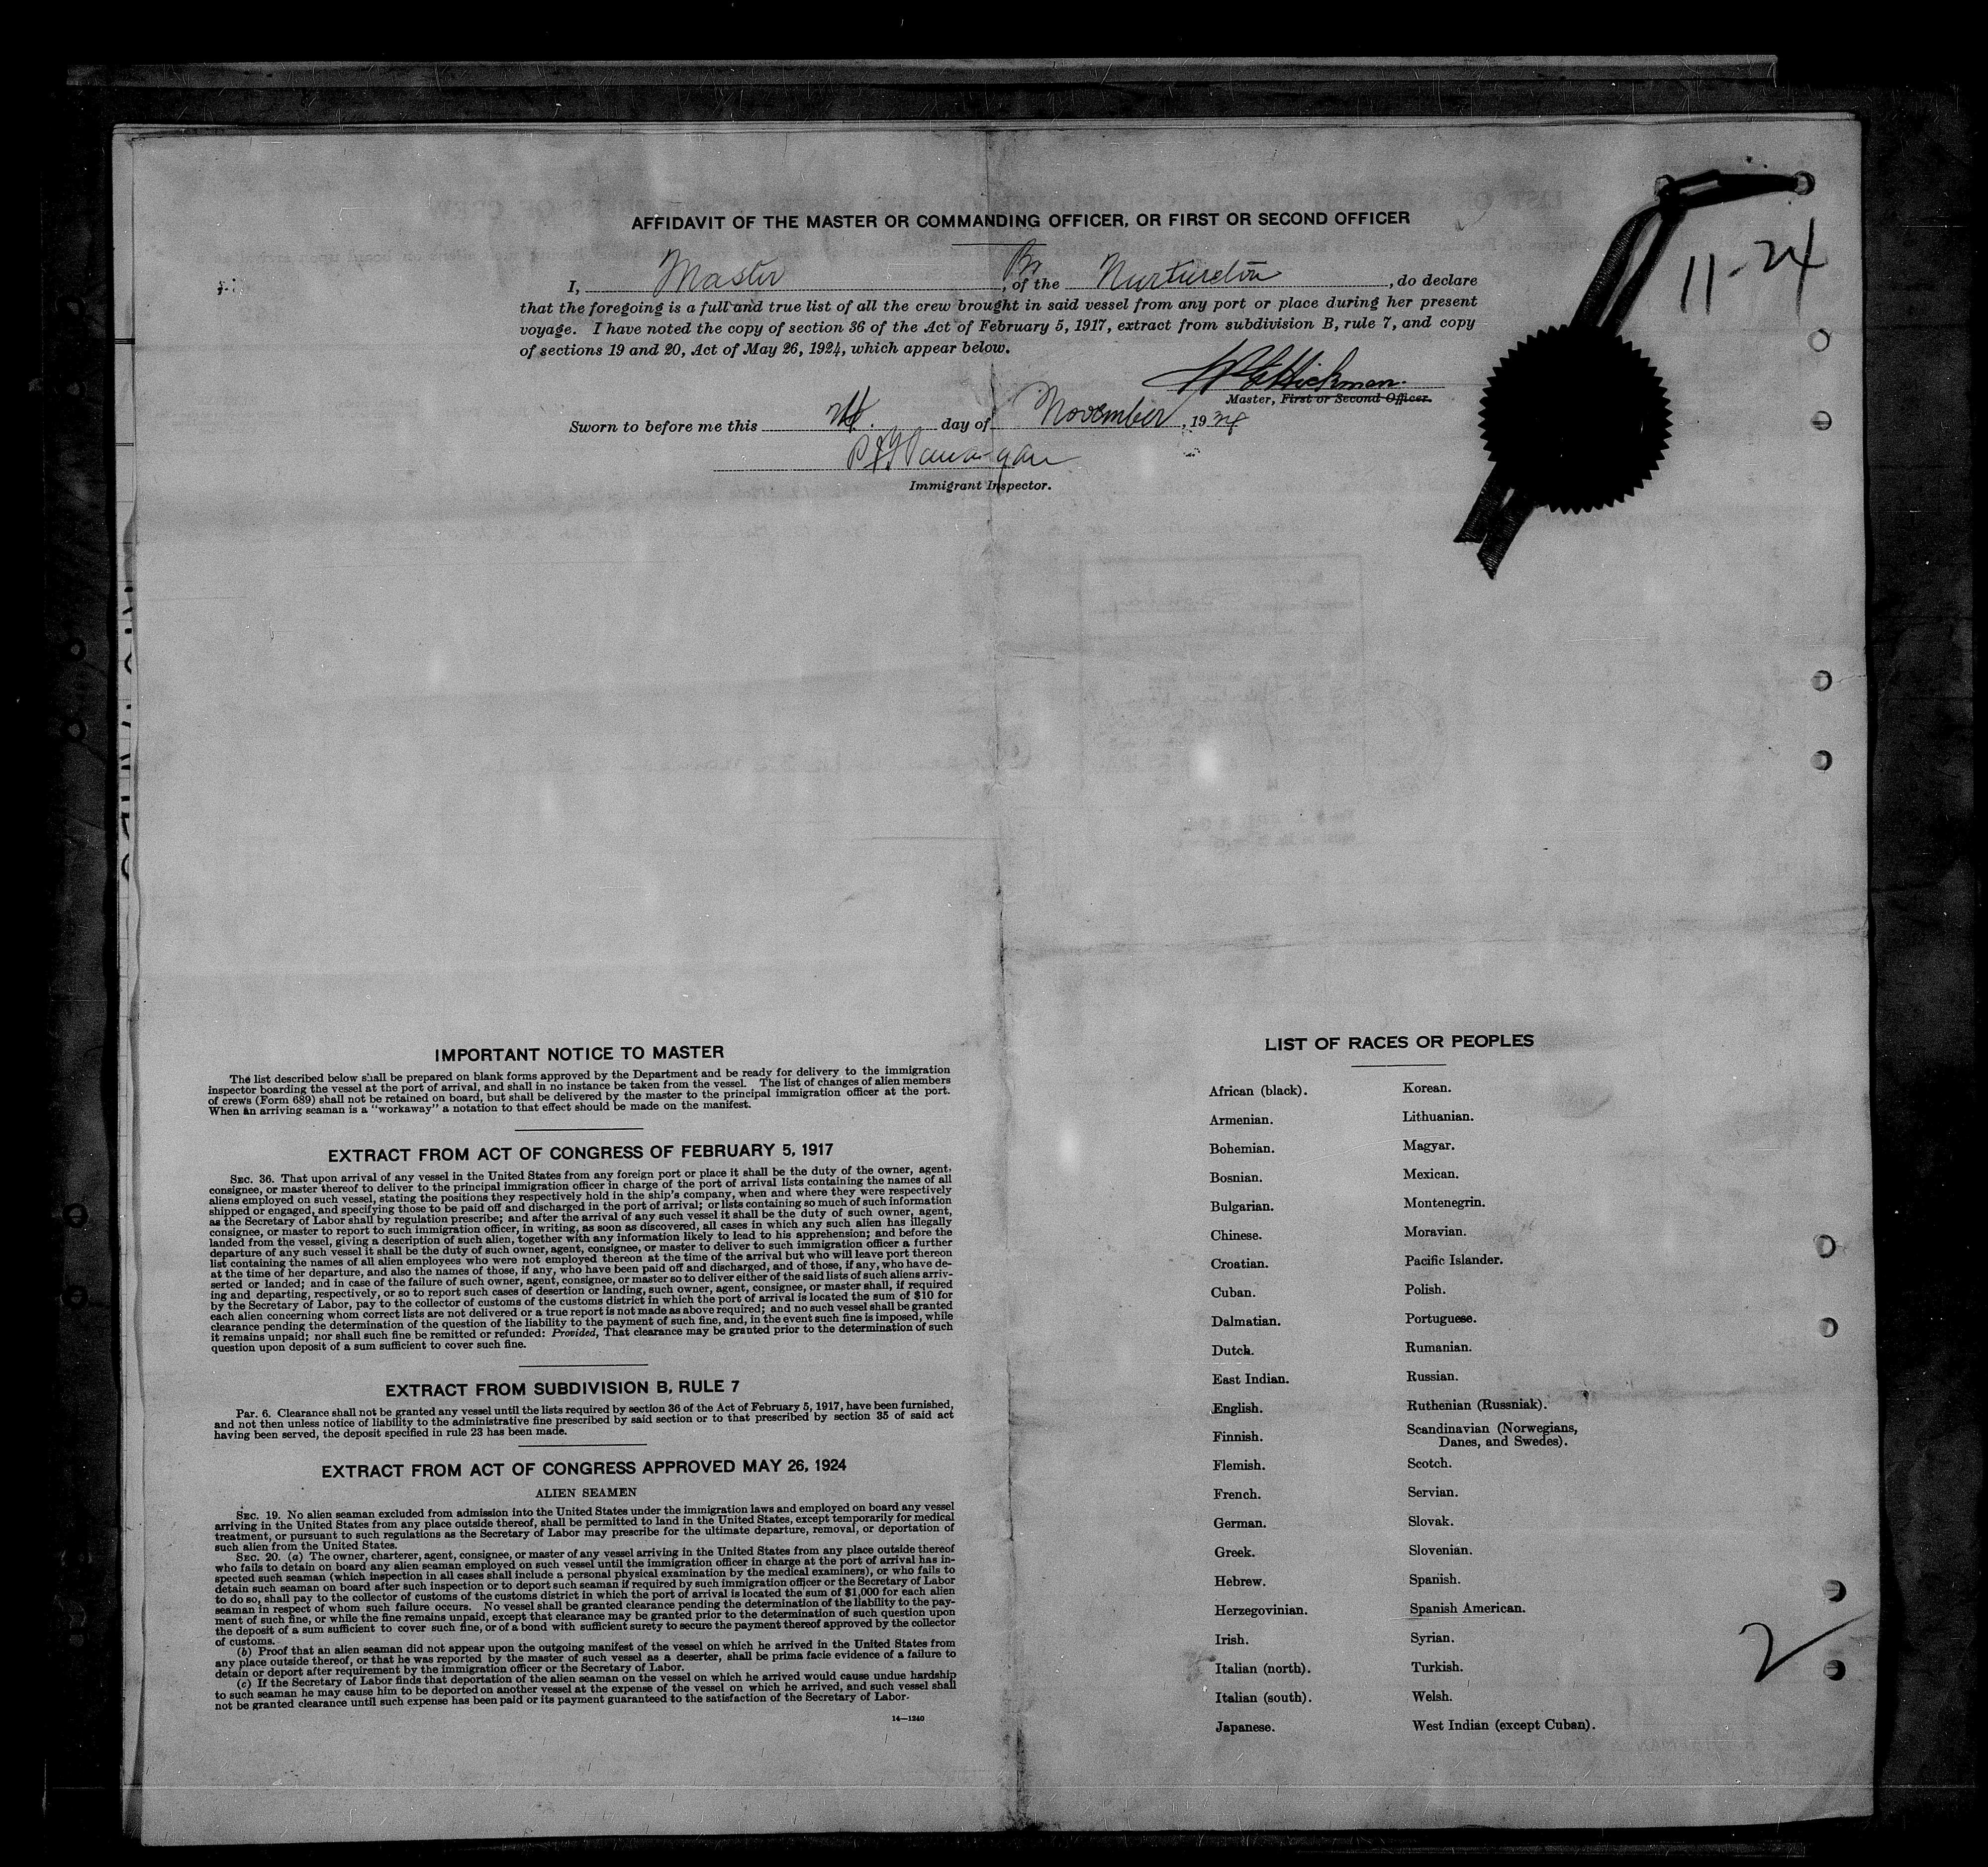 AFFIDAVIT OF THE MASTER OR COMMANDING OFFICER, OR FIRST OR SECOND OFFICER
11-24
I, Master, of the Br Nurtureton, do declare
that the foregoing is a full and true list of all the crew brought in said vessel from any port or place during her present
voyage. I have noted the copy of section 36 of the Act of February 5, 1917, extract from subdivision B, rule 7, and copy
of sections 19 and 20, Act of May 26, 1924, which appear below.
Hickman.
Master, First or Second Officer.
Sworn to before me this 24. day of November, 1934
Immigrant Inspector.
IMPORTANT NOTICE TO MASTER
The list described below shall be prepared on blank forms approved by the Department and be ready for delivery to the immigration
inspector boarding the vessel at the port of arrival, and shall in no instance be taken from the vessel. The list of changes of alien members
of crews (Form 689) shall not be retained on board, but shall be delivered by the master to the principal immigration officer at the port.
When an arriving seaman is a "workaway" a notation to that effect should be made on the manifest.
EXTRACT FROM ACT OF CONGRESS OF FEBRUARY 5, 1917
SEC. 36. That upon arrival of any vessel in the United States from any foreign port or place it shall be the duty of the owner, agent,
consignee, or master thereof to deliver to the principal immigration officer in charge of the port of arrival lists containing the names of all
aliens employed on such vessel, stating the positions they respectively hold in the ship's company, when and where they were respectively
shipped or engaged, and specifying those to be paid off and discharged in the port of arrival; or lists containing so much of such information
as the Secretary of Labor shall by regulation prescribe; and after the arrival of any such vessel it shall be the duty of such owner, agent,
consignee, or master to report to such immigration officer, in writing, as soon as discovered, all cases in which any such alien has illegally
landed from the vessel, giving a description of such alien, together with any information likely to lead to his apprehension; and before the
departure of any such vessel it shall be the duty of such owner, agent, consignee, or master to deliver to such immigration officer a further
list containing the names of all alien employees who were not employed thereon at the time of the arrival but who will leave port thereon
at the time of her departure, and also the names of those, if any, who have been paid off and discharged, and of those, if any, who have de-
serted or landed; and in case of the failure of such owner, agent, consignee, or master so to deliver either of the said lists of such aliens arriv-
ing and departing, respectively, or so to report such cases of desertion or landing, such owner, agent, consignee, or master shall, if required
by the Secretary of Labor, pay to the collector of customs of the customs district in which the port of arrival is located the sum of $10 for
each alien concerning whom correct lists are not delivered or a true report is not made as above required; and no such vessel shall be granted
clearance pending the determination of the question of the liability to the payment of such fine, and, in the event such fine is imposed, while
it remains unpaid; nor shall such fine be remitted or refunded: Provided, That clearance may be granted prior to the determination of such
question upon deposit of a sum sufficient to cover such fine.
EXTRACT FROM SUBDIVISION B, RULE 7
Par. 6. Clearance shall not be granted any vessel until the lists required by section 36 of the Act of February 5, 1917, have been furnished,
and not then unless notice of liability to the administrative fine prescribed by said section or to that prescribed by section 35 of said act
having been served, the deposit specified in rule 23 has been made.
EXTRACT FROM ACT OF CONGRESS APPROVED MAY 26, 1924
ALIEN SEAMEN
SEC. 19. No alien seaman excluded from admission into the United States under the immigration laws and employed on board any vessel
arriving in the United States from any place outside thereof, shall be permitted to land in the United States, except temporarily for medical
treatment, or pursuant to such regulations as the Secretary of Labor may prescribe for the ultimate departure, removal, or deportation of
such alien from the United States.
SEC. 20. (a) The owner, charterer, agent, consignee, or master of any vessel arriving in the United States from any place outside thereof
who fails to detain on board any alien seaman employed on such vessel until the immigration officer in charge at the port of arrival has in-
spected such seaman (which inspection in all cases shall include a personal physical examination by the medical examiners), or who fails to
detain such seaman on board after such inspection or to deport such seaman if required by such immigration officer or the Secretary of Labor
to do so, shall pay to the collector of customs of the customs district in which the port of arrival is located the sum of $1,000 for each alien
seaman in respect of whom such failure occurs. No vessel shall be granted clearance pending the determination of the liability to the pay-
ment of such fine, or while the fine remains unpaid, except that clearance may be granted prior to the determination of such question upon
the deposit of a sum sufficient to cover such fine, or of a bond with sufficient surety to secure the payment thereof approved by the collector
of customs.
(b) Proof that an alien seaman did not appear upon the outgoing manifest of the vessel on which he arrived in the United States from
any place outside thereof, or that he was reported by the master of such vessel as a deserter, shall be prima facie evidence of a failure to
detain or deport after requirement by the immigration officer or the Secretary of Labor.
(c) If the Secretary of Labor finds that deportation of the alien seaman on the vessel on which he arrived would cause undue hardship
to such seaman he may cause him to be deported on another vessel at the expense of the vessel on which he arrived, and such vessel shall
not be granted clearance until such expense has been paid or its payment guaranteed to the satisfaction of the Secretary of Labor.
14—1240
LIST OF RACES OR PEOPLES
African (black).
Armenian.
Bohemian.
Bosnian.
Bulgarian.
Chinese.
Croatian.
Cuban.
Dalmatian.
Dutch.
East Indian.
English.
Finnish.
Flemish.
French.
German.
Greek.
Hebrew.
Herzegovinian.
Irish.
Italian (north).
Italian (south).
Japanese.
Korean.
Lithuanian.
Magyar.
Mexican.
Montenegrin.
Moravian.
Pacific Islander.
Polish.
Portuguese.
Rumanian.
Russian.
Ruthenian (Russniak).
Scandinavian (Norwegians,
Danes, and Swedes).
Scotch.
Servian.
Slovak.
Slovenian.
Spanish.
Spanish American.
Syrian.
Turkish.
Welsh.
West Indian (except Cuban).
2